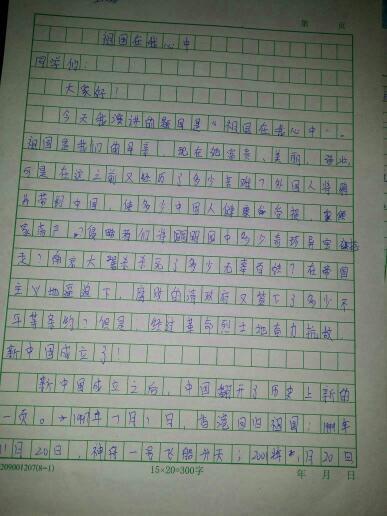 第 页
祖国在我心中
同学们:
大家好!
今天我演讲的题目是“祖国在我心中”。
祖国是我们的母亲,现在她富贵、美丽、
可是在这之前又经历了多少苦难?外国人将鸦
片带到中国,使多少中国人健康受
家荡产。侵略者们将圆明园中多少奇珍异宝
走?南京大屠杀杀死了多少无辜百姓?在帝国
主义地逼迫下,腐败的清政府又签下了多少不
平等条约?但是,经过革命烈士地奋力抗敌,
新中国成立了!
新中国成立之后,中国翻开了历史上新的
一页。1997年7月1日,香港回归祖国;1999年
11月20日,神舟一号飞船升天;2001年,1月20日
209001207(8-1)
15×20=300字
年 月 日